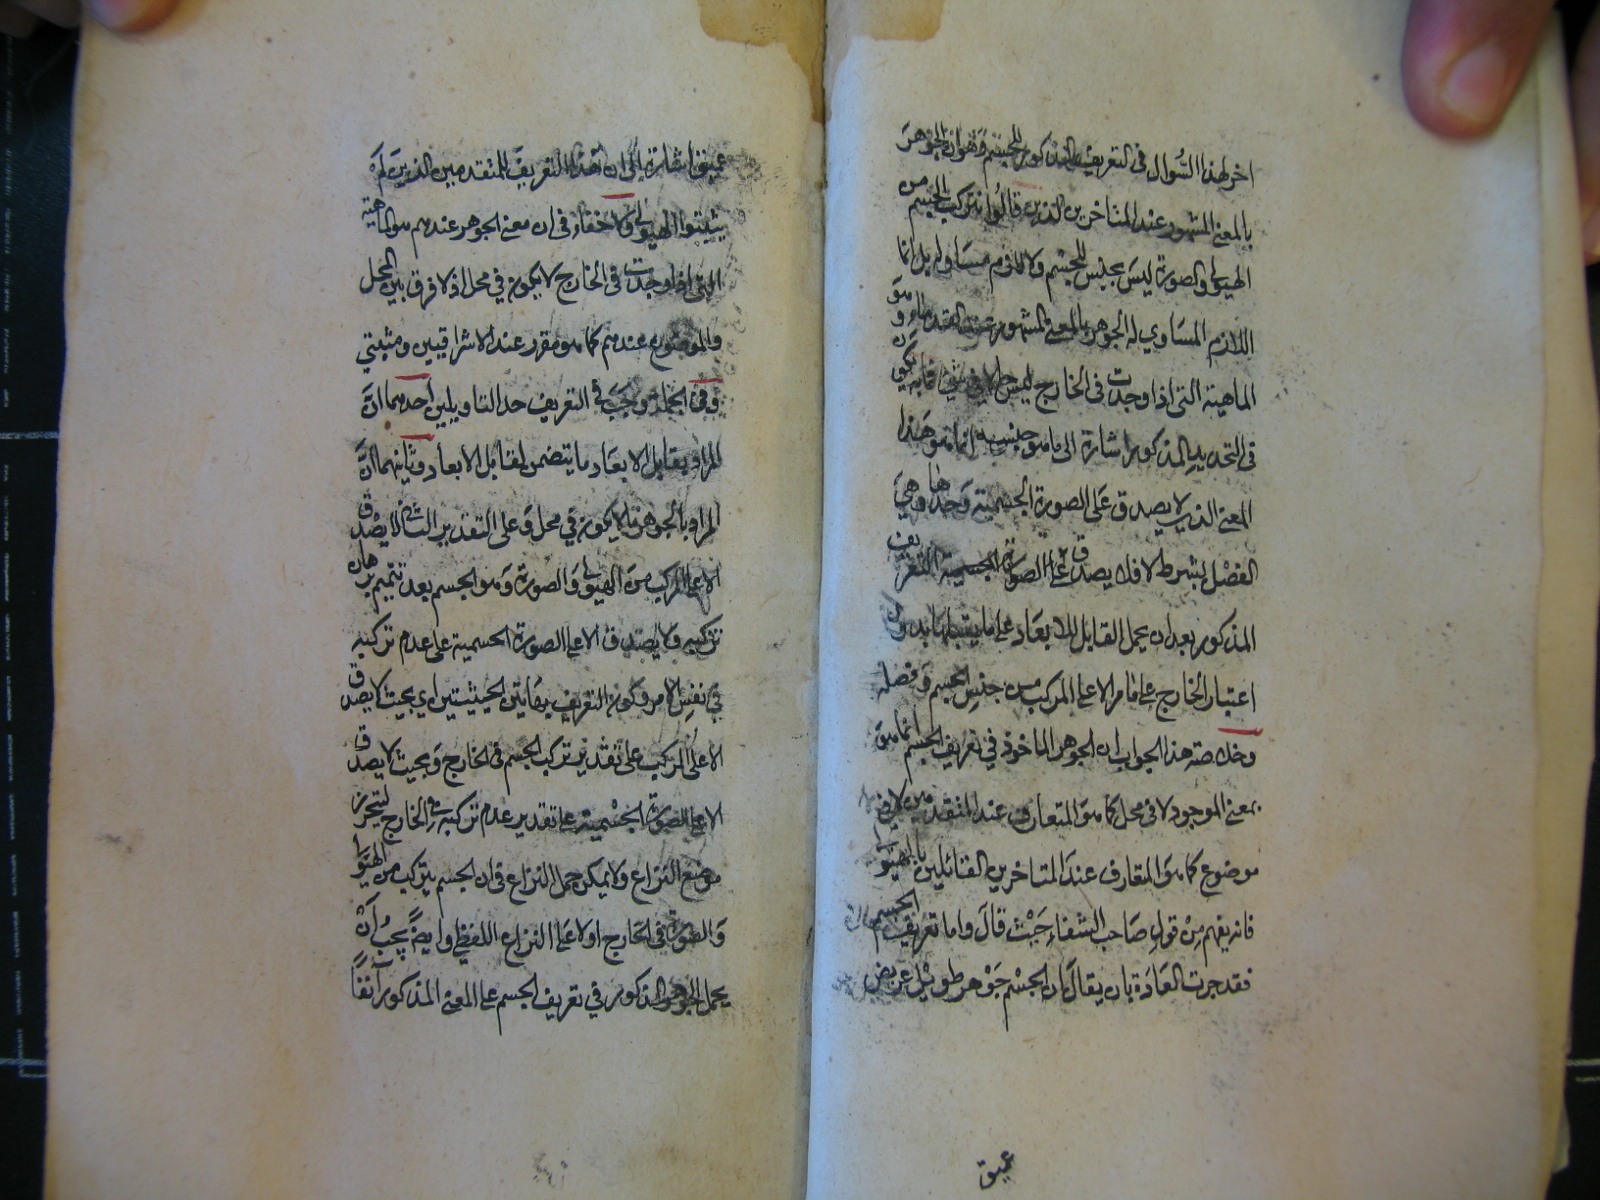 اخر لهذا السؤال في التعريف المذكور للجسم وهو ان الجوهر
بالمعنى المشهور عند المتاخرين الذين قالوا بتركب الجسم من
الهيولى والصورة ليس بجنس للجسم ولا لازم مساو له بل انما
اللازم المساوي له الجوهر بالمعنى المشهور عند القدماء وهو
الماهية التى اذا وجدت فى الخارج ليس لا في
فى التحديد المذكور اشارة الى ما هو جنسه انما هو هذا
المعنى الذي لا يصدق على الصورة الجسمية وحدها وهي
الفصل بشرط لا فلا يصدق على الصورة الجسمية التعريف
المذكور بعد ان يحمل القابل للابعاد على ما يقبلها بدون
اعتبار الخارج على ما مر الا على المركب من جنس الجسم وفصله
وخلاصة هذا الجواب ان الجوهر الماخوذ في تعريف الجسم انما هو
بمعنى الموجود لا فى محل كما هو المتعارف عند المتقدمين لا في
موضوع كما هو المتعارف عند المتاخرين القائلين بالهيولى
فانه يفهم من قول صاحب الشفاء حيث قال واما تعريف الجسم
فقد جرت العادة بان يقال ان الجسم جوهر طويل عريض
عميق
عميق اشارة الى ان هذا التعريف للمتقدمين الذين لم
يثبتوا الهيولى ولا خفاء فى ان معنى الجوهر عندهم هو الماهية
التى اذا وجدت فى الخارج لا يكون في محل اذ لا فرق بين المحل
والموضوع عندهم كما هو مقرر عند الاشراقيين ومثبتي
وفى الجملة وجب في التعريف احد التاويلين احدهما ان
المراد بقابل الابعاد ما يتضمن لقابل الابعاد وثانيهما ان
المراد بالجوهر ما لا يكون في محل وعلى التقدير الثانى لا يصدق
الا على المركب من الهيولى والصورة وهو الجسم بعد تتميم برهان
تركيبه ولا يصدق الا على الصورة الجسمية على عدم تركبه
في نفس الامر وكون التعريف بهاتين الحيثيتين اي بحيث لا يصدق
الا على المركب على تقدير تركب الجسم فى الخارج وبحيث لا يصدق
الا على الصورة الجسمية على تقدير عدم تركبه في الخارج
موضع النزاع ولا يمكن حمل النزاع فى ان الجسم يتركب من الهيولى
والصورة فى الخارج او لا على النزاع اللفظي وايضا يجب ان
يحمل الجوهر المذكور في تعريف الجسم على المعنى المذكور آنفا